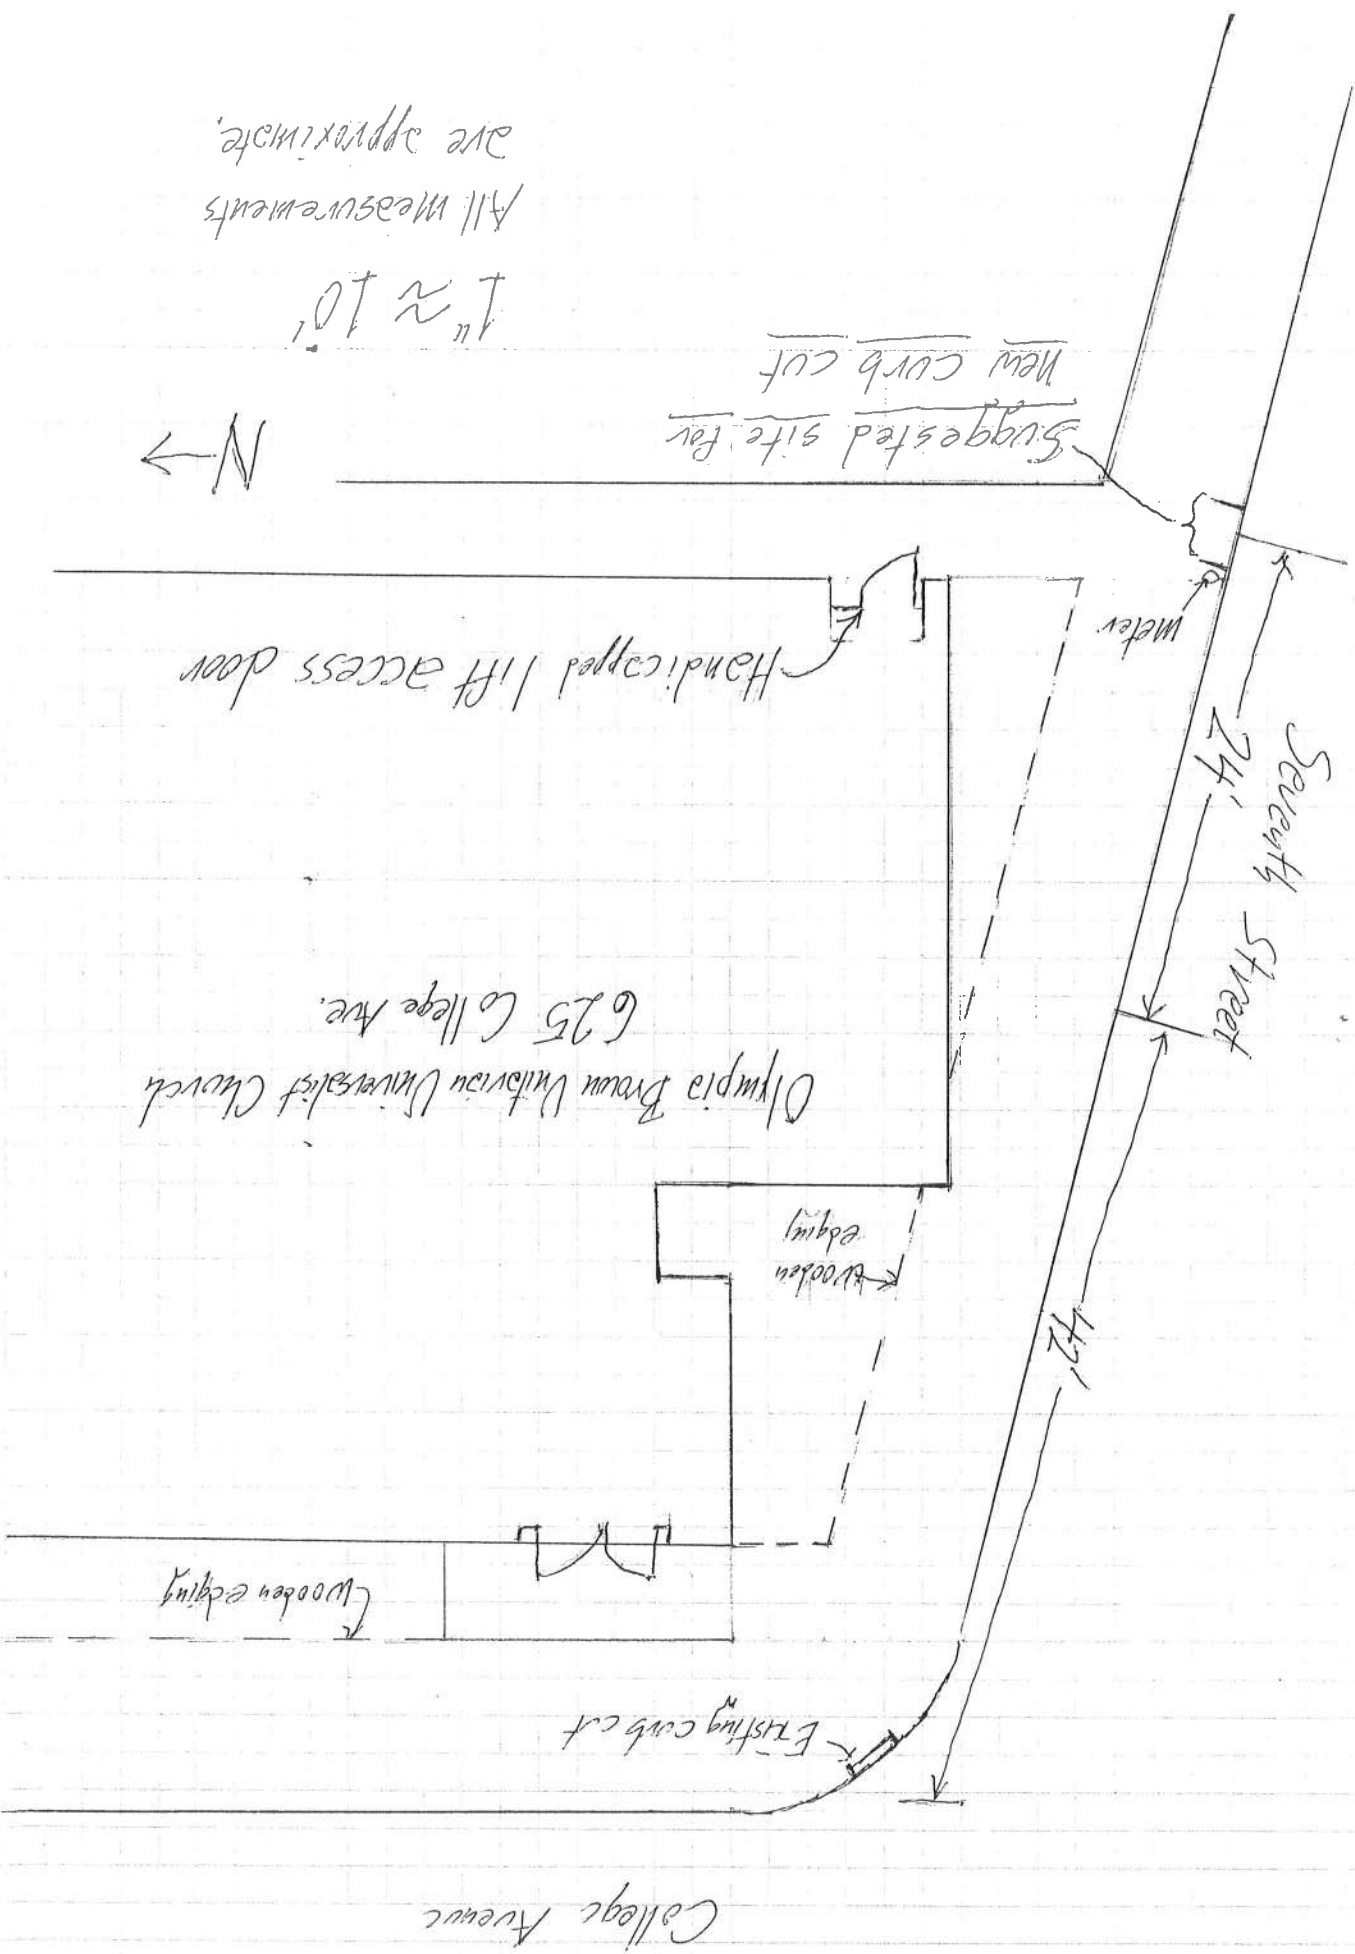 College Avenue
Existing curb cut
Wooden edging
wooden
edging
Olympia Brown Unitarian Universalist Church
625 College Ave.
42'
Seventh Street
24'
Handicapped lift access door
meter
N
Suggested site for
new curb cut
1" ≈ 10'
All measurements
are approximate.